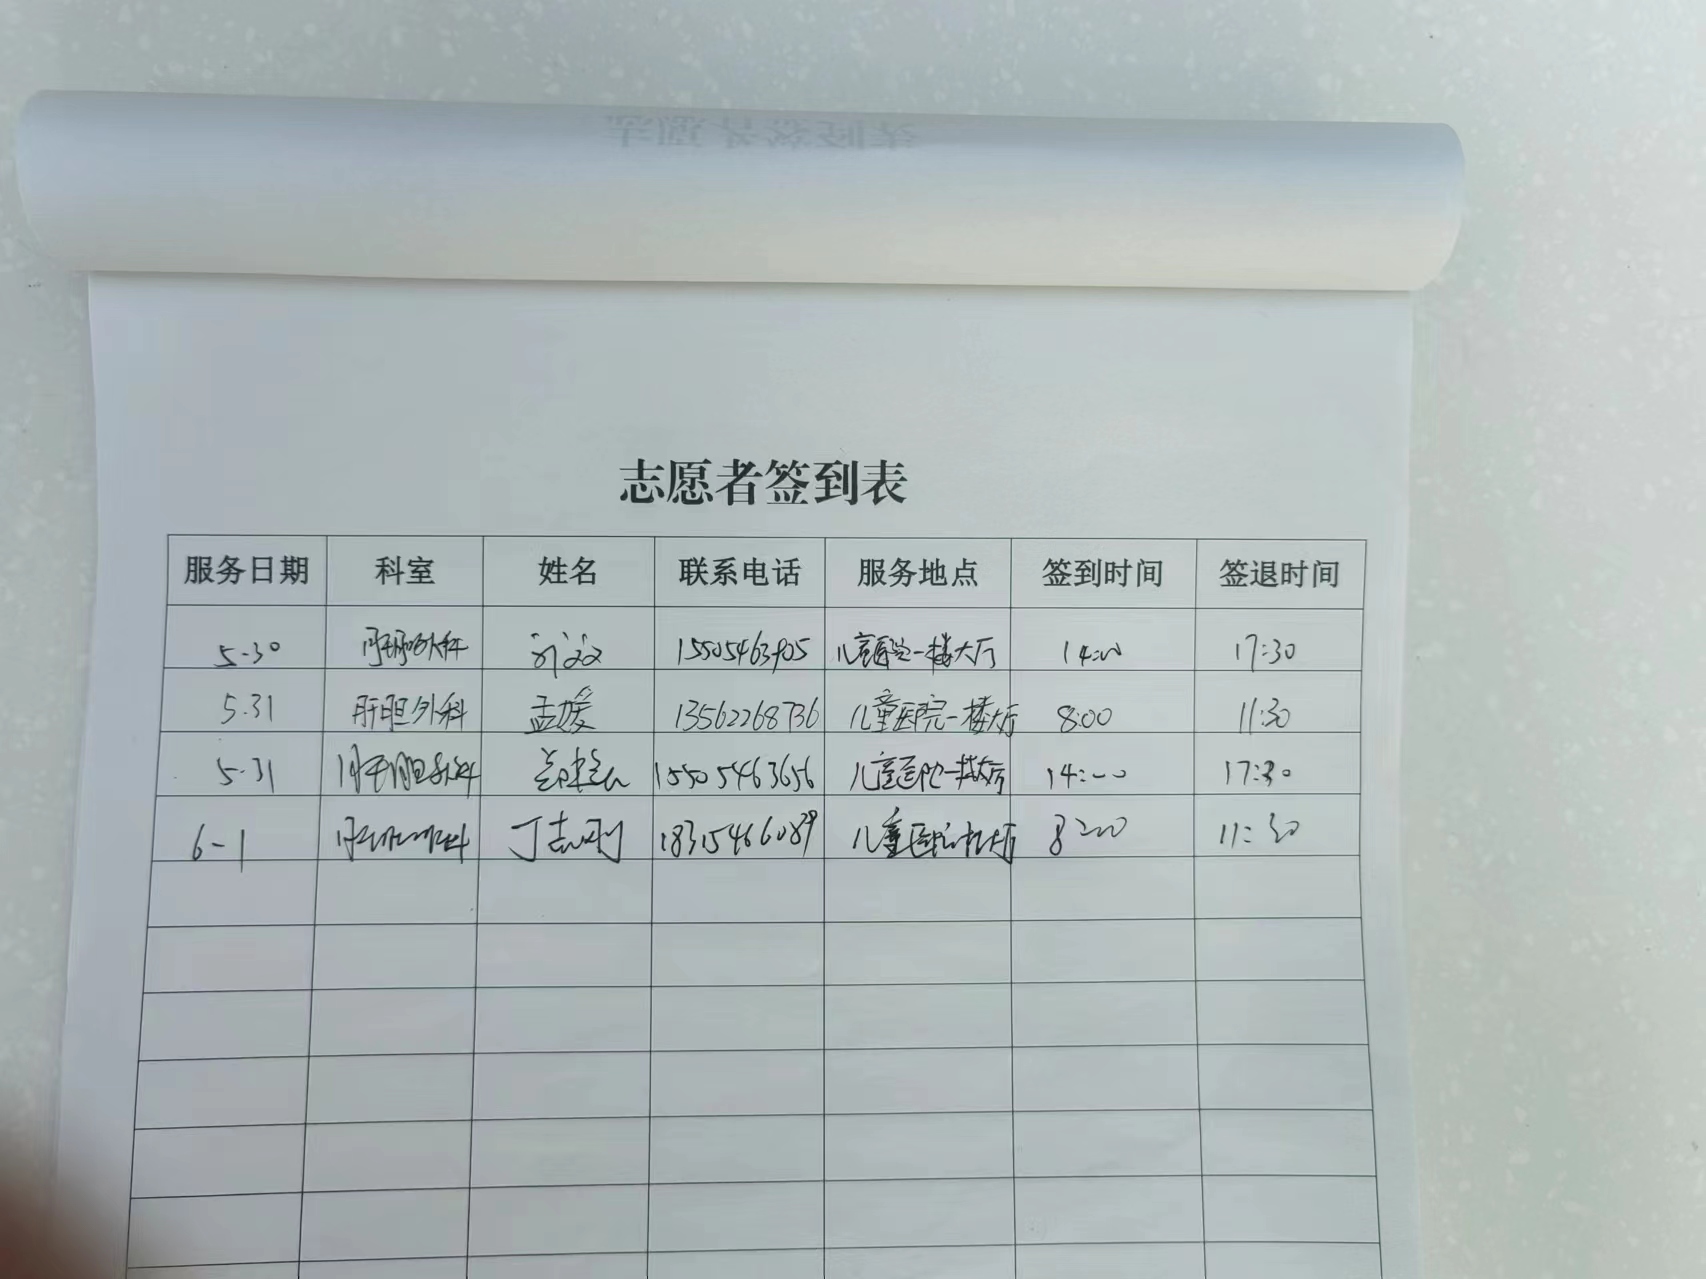 志愿者签到表
服务日期 科室 姓名 联系电话 服务地点 签到时间 签退时间
5-30 肝胆外科 15505463905 儿童医院一楼大厅 14:00 17:30
5.31 肝胆外科 孟媛 13562268736 儿童医院一楼大厅 8:00 11:30
5.31 肝胆外科 15505463656 儿童医院一楼大厅 14:00 17:30
6-1 肝胆外科 丁志刚 18315466089 儿童医院一楼大厅 8:00 11:30